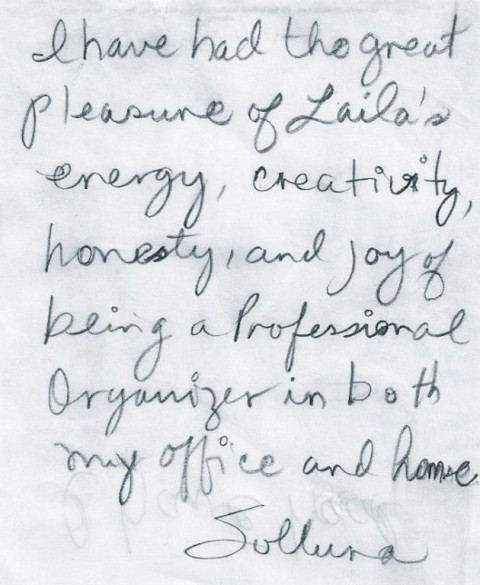 I have had the great
pleasure of Laila's
energy, creativity,
honesty, and joy of
being a Professional
Organizer in both
my office and home
Solluna